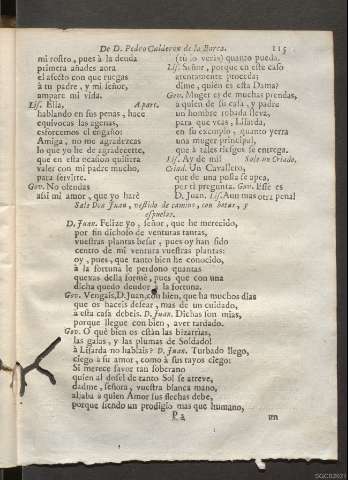 De D. Pedro Calderon de la Barca. 115
mi rostro, pues à la deuda
primera añades aora
el afecto con que ruegas
à tu padre, y mi señor,
ampare mi vida.
Lis. Elia, Aparte.
hablando en sus penas, hace
equivocas las agenas,
esforcemos el engaño:
Amiga, no me agradezcas
lo que yo he de agradecerte,
que en esta ocasion quisiera
valer con mi padre mucho,
para servirte.
Gov. No ofendas
assi mi amor, que yo harè
(tu lo veràs) quanto pueda.
Lis. Señor, porque en este caso
atentamente proceda;
dime, quien es esta Dama?
Gov. Muger es de muchas prendas,
à quien de su casa, y padre
un hombre robada lleva,
para que veas, Lisarda,
en su exemplo, quanto yerra
una muger principal,
que à tales riesgos se entrega.
Lis. Ay de mi! Sale un Criado.
Criad. Un Cavallero,
que de una posta se apea,
por ti pregunta. Gov. Esse es
D. Juan. Lis. Aun mas otra pena!
Sale Don Juan, vestido de camino, con botas, y
espuelas.
D. Juan. Felize yo, señor, que he merecido,
por fin dichoso de venturas tantas,
vuestras plantas besar, pues oy han sido
centro de mi ventura vuestras plantas:
oy, pues, que tanto bien he conocido,
à la fortuna le perdono quantas
quexas della formè, pues que con una
dicha quedo deudor à la fortuna.
Gov. Vengais, D. Juan, con bien, que ha muchos dias
que os haceis desear, mas de un cuidado,
à esta casa debeis. D. Juan. Dichas son mias,
porque llegue con bien, aver tardado.
Gov. O què bien os estàn las bizarrias,
las galas, y las plumas de Soldado!
à Lisarda no hablais? D. Juan. Turbado llego,
ciego à su amor, como à sus rayos ciego:
Si merece favor tan soberano
quien al dosel de tanto Sol se atreve,
dadme, señora, vuestra blanca mano,
aljaba à quien Amor sus flechas debe,
porque siendo un prodigio mas que humano,
P 2 un